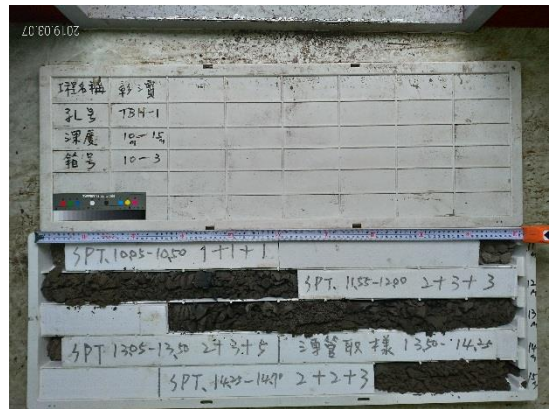 2019.03.07
工程名稱 彰濱
孔号 TBH-1
深度 10m-15m
箱号 10-3
SPT. 10.05-10.50 1+1+1
SPT. 11.55-12.00 2+3+3
12m
13m
SPT 13.05-13.50 2+3+5 薄管取樣 13.50-14.25
14m
SPT. 14.25-14.70 2+2+3
15m